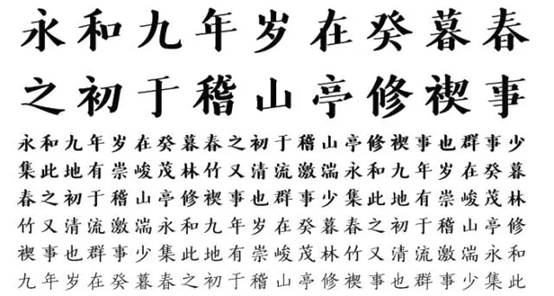 永和九年岁在癸暮春
之初于稽山亭修禊事
永和九年岁在癸暮春之初于稽山亭修禊事也群事少
集此地有崇峻茂林竹又清流激湍永和九年岁在癸暮
春之初于稽山亭修禊事也群事少集此地有崇峻茂林
竹又清流激湍永和九年岁在癸暮春之初于稽山亭修
禊事也群事少集此地有崇峻茂林竹又清流激湍永和
九年岁在癸暮春之初于稽山亭修禊事也群事少集此